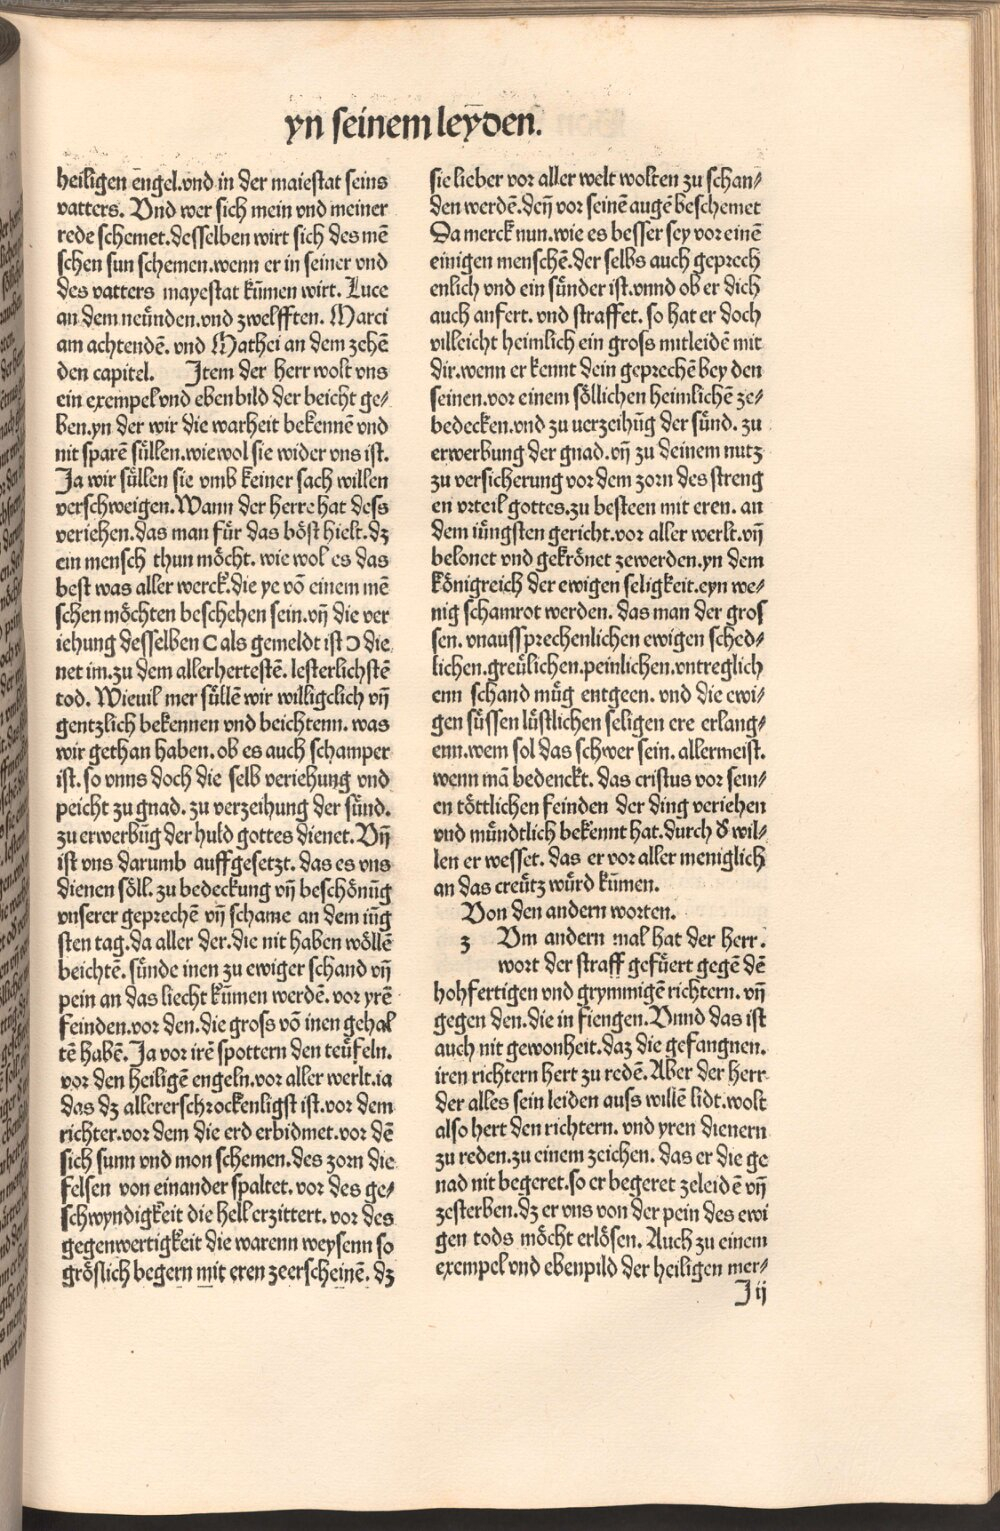 yn seinem leyden.
heiligen engel.vnd in der maiestat seins
vatters. Vnd wer sich mein vnd meiner
rede schemet.desselben wirt sich des mē
schen sun schemen.wenn er in seiner vnd
des vatters mayestat kūmen wirt. Luce
an dem neünden.vnd zwelfften. Marci
am achtendē. vnd Mathei an dem zehē
den capitel. Item der herr wolt vns
ein exempel vnd ebenbild der beicht ge⸗
ben.yn der wir die warheit bekennē vnd
nit sparē süllen.wiewol sie wider vns ist.
Ja wir süllen sie vmb keiner sach willen
verschweigen.Wann der herre hat dess
veriehen.das man für das böst hielt.dz
ein mensch thun möcht. wie wol es das
best was aller werck.die ye vō einem mē
schen möchten beschehen sein.vn̄ die ver
iehung desselben C als gemeldt ist Ɔ die
net im.zu dem allerhertestē. lesterlichstē
tod. Wieuil mer süllē wir willigclich vn̄
gentzlich bekennen vnd beichtenn. was
wir gethan haben. ob es auch schamper
ist. so vnns doch die selb veriehung vnd
peicht zu gnad. zu verzeihung der sünd.
zu erwerbūg der huld gottes dienet. Vn̄
ist vns darumb auffgesetzt. das es vns
dienen söll. zu bedeckung vn̄ beschönūg
vnserer geprechē vn̄ schame an dem iūg
sten tag.da aller der.die nit haben wöllē
beichtē. sünde inen zu ewiger schand vn̄
pein an das liecht kūmen werdē. vor yrē
feinden.vor den.die gross vō inen gehal
tē habē. Ja vor irē spottern den teüfeln.
vor den heiligē engeln.vor aller werlt.ia
das dz allererschrockenligst ist.vor dem
richter.vor dem die erd erbidmet.vor dē
sich sunn vnd mon schemen.des zorn die
felsen von einander spaltet. vor des ge⸗
schwyndigkeit die hell erzittert. vor des
gegenwertigkeit die warenn weysenn so
gröslich begern mit eren zeerscheinē. dz
sie lieber vor aller welt wolten zu schan⸗
den werdē.den̄ vor seinē augē beschemet
Da merck nun.wie es besser sey vor einē
einigen menschē.der selbs auch geprech
enlich vnd ein sünder ist.vnnd ob er dich
auch anfert. vnd straffet. so hat er doch
villeicht heimlich ein gross mitleidē mit
dir.wenn er kennt dein geprechē bey den
seinen.vor einem söllichen heimlichē ze⸗
bedecken.vnd zu uerzeihūg der sünd. zu
erwerbung der gnad. vn̄ zu deinem nutz
zu versicherung vor dem zorn des streng
en vrteil gottes.zu besteen mit eren. an
dem iüngsten gericht.vor aller werlt.vn̄
belonet vnd gekrönet zewerden.yn dem
königreich der ewigen seligkeit.eyn we⸗
nig schamrot werden. das man der gros
sen. vnaussprechenlichen ewigen sched⸗
lichen.greülichen.peinlichen.vntreglich
enn schand müg entgeen. vnd die ewi⸗
gen süssen lüstlichen seligen ere erlang⸗
enn.wem sol das schwer sein. allermeist.
wenn mā bedenckt. das cristus vor sein⸗
en töttlichen feinden der ding veriehen
vnd mündtlich bekennt hat.durch d̕ wil⸗
len er wesset. das er vor aller meniglich
an das creütz würd kūmen.
Von den andern worten.
3 Vm andern mal hat der herr.
wort der straff gefüert gegē dē
hohfertigen vnd grymmigē richtern. vn̄
gegen den. die in fiengen. Vnnd das ist
auch nit gewonheit.daz die gefangnen.
iren richtern hert zu redē. Aber der herr
der alles sein leiden auss willē lidt.wolt
also hert den richtern. vnd yren dienern
zu reden.zu einem zeichen. das er die ge
nad nit begeret.so er begeret zeleidē vn̄
zesterben.dz er vns von der pein des ewi
gen tods möcht erlösen. Auch zu einem
exempel vnd ebenpild der heiligen mer⸗
J ij